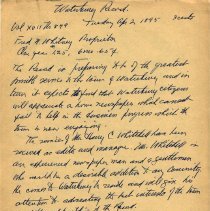 Waterbury Record.
Vol XVII No 844 Tuesday Apr 2, 1895 3 cents
Fred H Whitney Proprietor
Per year 1.25, over 65 f
The Record is preparing to be of the greatest
service to the town of Waterbury and in
turn it expects to find that Waterbury citizens
will appreciate a home newspaper which cannot
fail to help in the business progress which the
town is now enjoying.
The service of Mr Harry C Whitehill has been
secured as editor and manager. Mr. Whitehill is
an experienced newspaper man and a gentleman
who would be a desirable addition to any community.
He comes to Waterbury to reside and will give his
attention to advancing the best interests of the town
the Record.